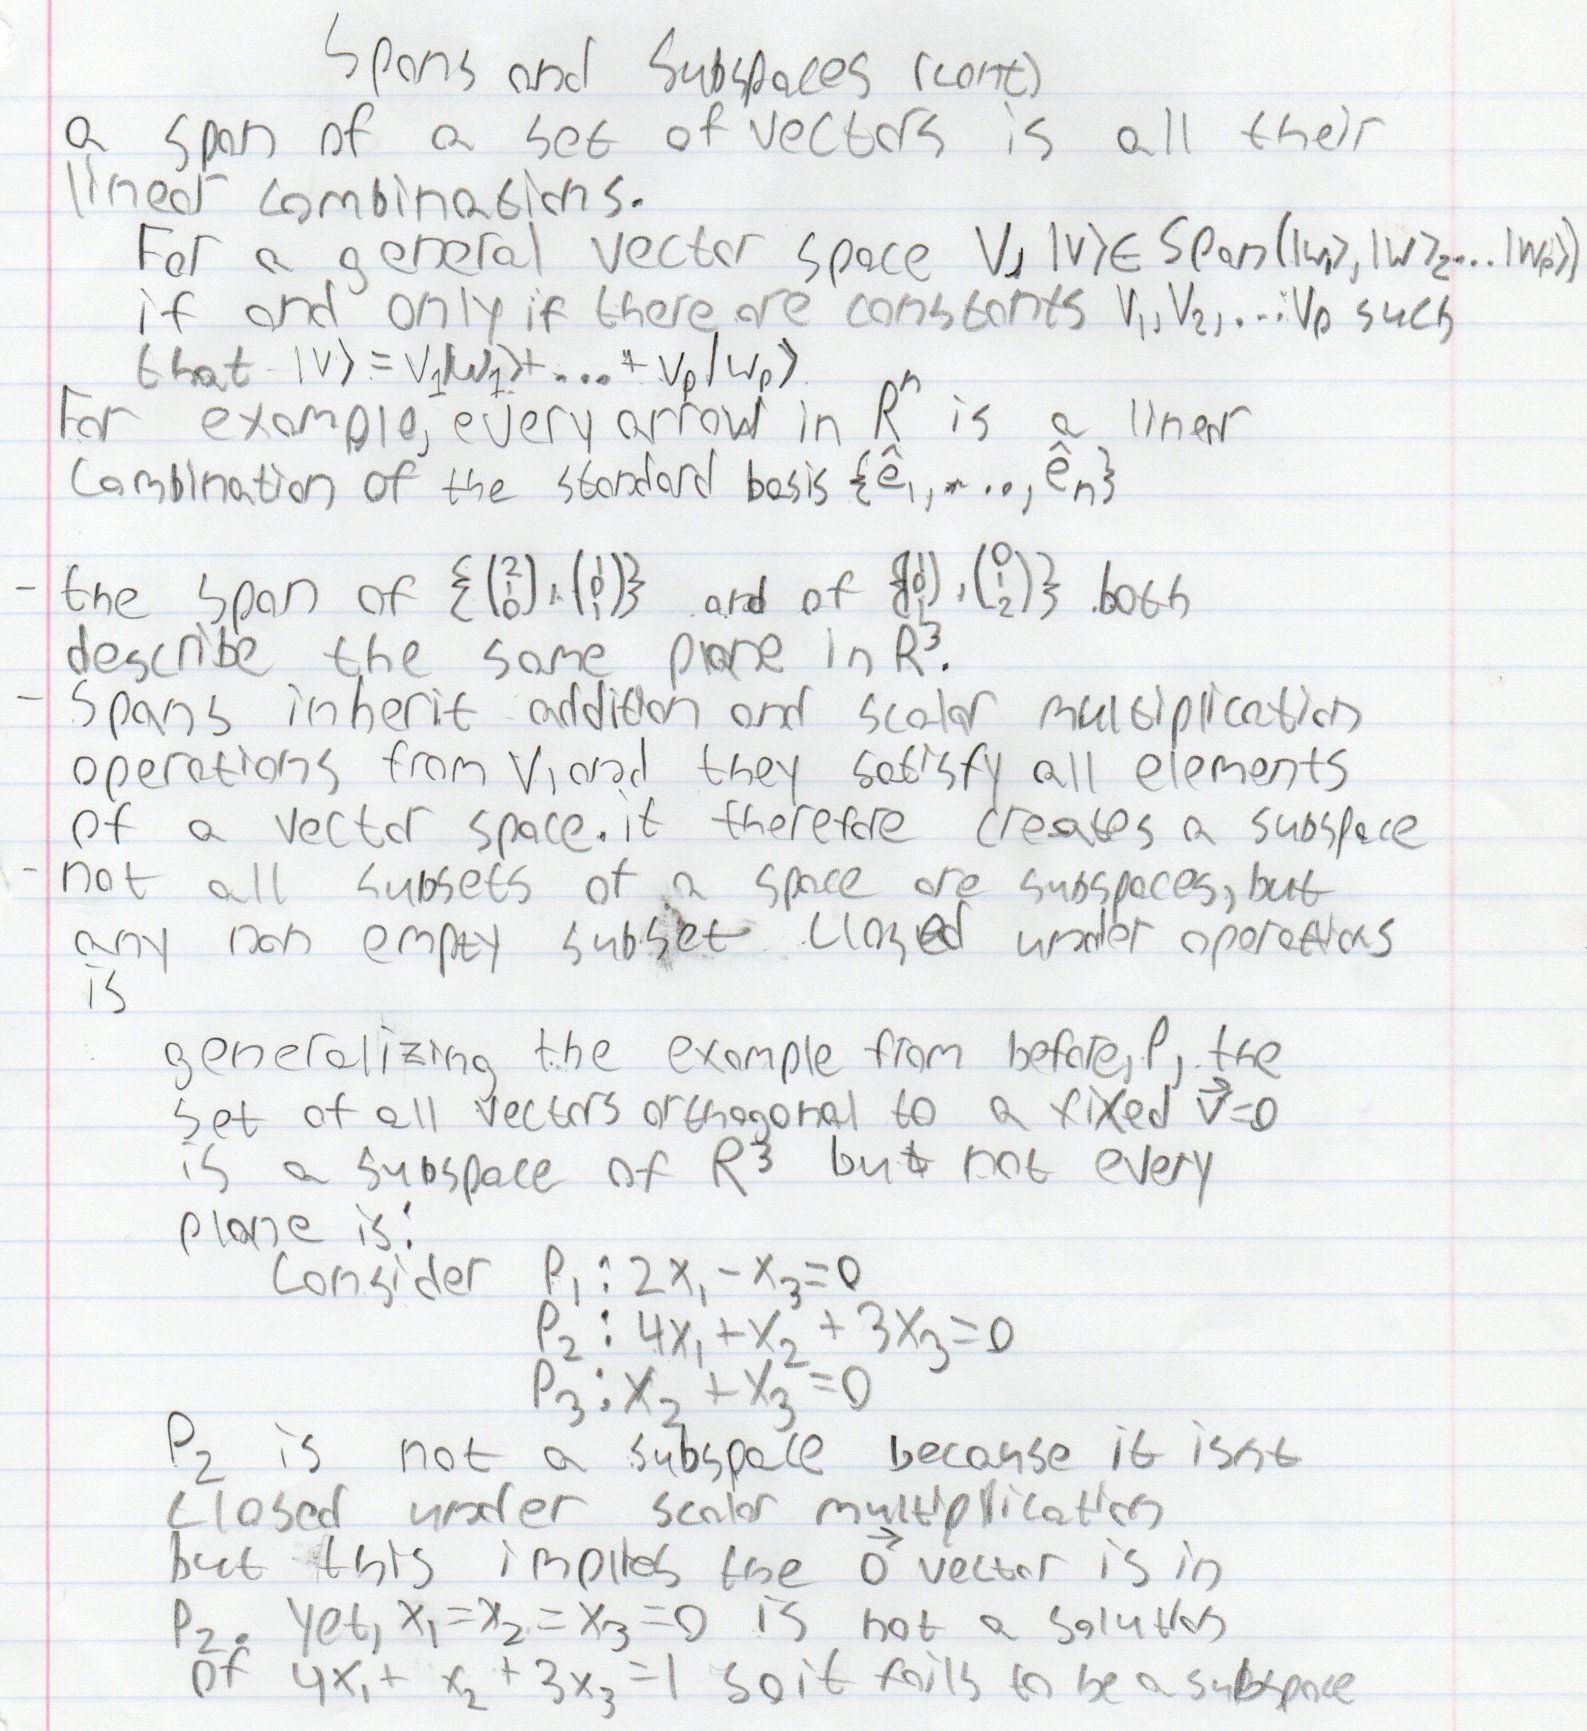 Spans and Subspaces (cont)
a span of a set of vectors is all their
linear combinations.
For a general vector space V, |v⟩∈ Span(|w₁⟩, |w⟩₂.... |wₚ⟩)
if and only if there are constants V₁, V₂, ... Vₚ such
that |v⟩ = V₁|w₁⟩+....+ vₚ|wₚ⟩
For example, every arrow in Rⁿ is a linear
combination of the standard basis {ê₁, ..., êₙ}
- the span of {(2 1 0), (1 0 1)} and of {(1 0 1), (0 1 2)} both
describe the same plane in R³.
- Spans inherit addition and scalar multiplication
operations from V, and they satisfy all elements
of a vector space. it therefore creates a subspace
- not all subsets of a space are subspaces, but
any non empty subset closed under operations
is
generalizing the example from before, P, the
set of all vectors orthogonal to a fixed v⃗=0
is a subspace of R³ but not every
plane is:
Consider P₁: 2x₁ - x₃=0
P₂: 4x₁ + x₂ + 3x₃=0
P₃: x₂ + x₃ =0
P₂ is not a subspace because it isnt
closed under scalar multiplication
but this implies the 0⃗ vector is in
P₂. Yet, x₁=x₂=x₃=0 is not a solution
of 4x₁+ x₂ + 3x₃ =1 so it fails to be a subspace